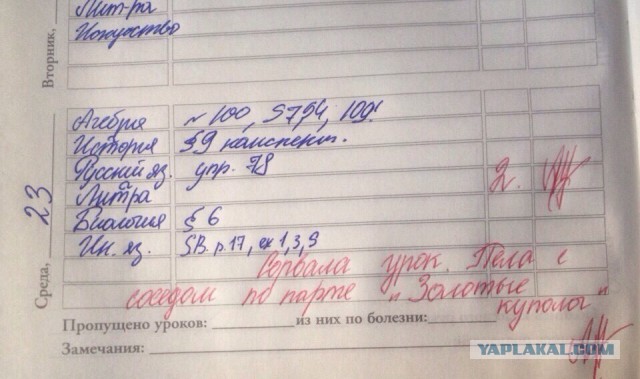 Лит-ра
Искусство
Вторник,
Алгебра № 100, 57,94, 109!
История §9 конспект.
Русский яз. упр. 78
Литра 2.
Биология § 6
Ин. яз. SB. p. 17, ex 1, 3, 9
Среда, 23
Сорвала урок. Пела с
соседом по парте "Золотые
купола"
Пропущено уроков: из них по болезни:
Замечания:
YAPLAKAL.COM